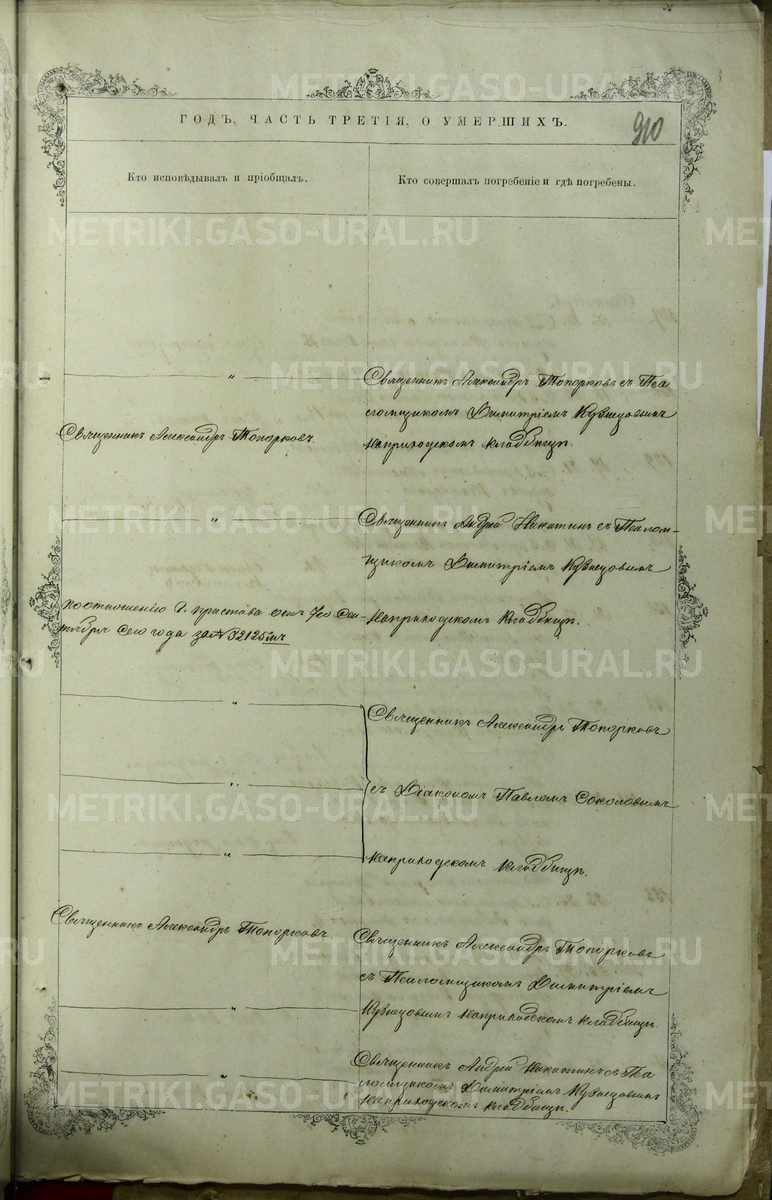 ГОДЪ, ЧАСТЬ ТРЕТІЯ, О УМЕРШИХЪ.
910
Кто исповѣдывалъ и пріобщалъ.
Кто совершалъ погребеніе и гдѣ погребены.
"
Священникъ Александръ Топорковъ съ Пса
ломщикомъ Димитріемъ Кузнецовымъ
Священникъ Александръ Топорковъ.
на приходскомъ кладбищѣ.
"
Священникъ Андрей Никитинъ съ Псалом-
щикомъ Димитріемъ Кузнецовымъ
По отношенію г. пристава отъ 7го Сен-
тября сего года за № 32125мъ
на приходскомъ кладбищѣ.
"
Священникъ Александръ Топорковъ
"
съ Діакономъ Павломъ Соколовымъ
"
на приходскомъ кладбищѣ.
Священникъ Александръ Топорковъ
Священникъ Александръ Топорковъ
съ Псаломщикомъ Димитріемъ
"
Кузнецовымъ на приходскомъ кладбищѣ.
"
Священникъ Андрей Никитинъ съ Пса
ломщикомъ Димитріемъ Кузнецовымъ
на приходскомъ кладбищѣ.
METRIKI.GASO-URAL.RU